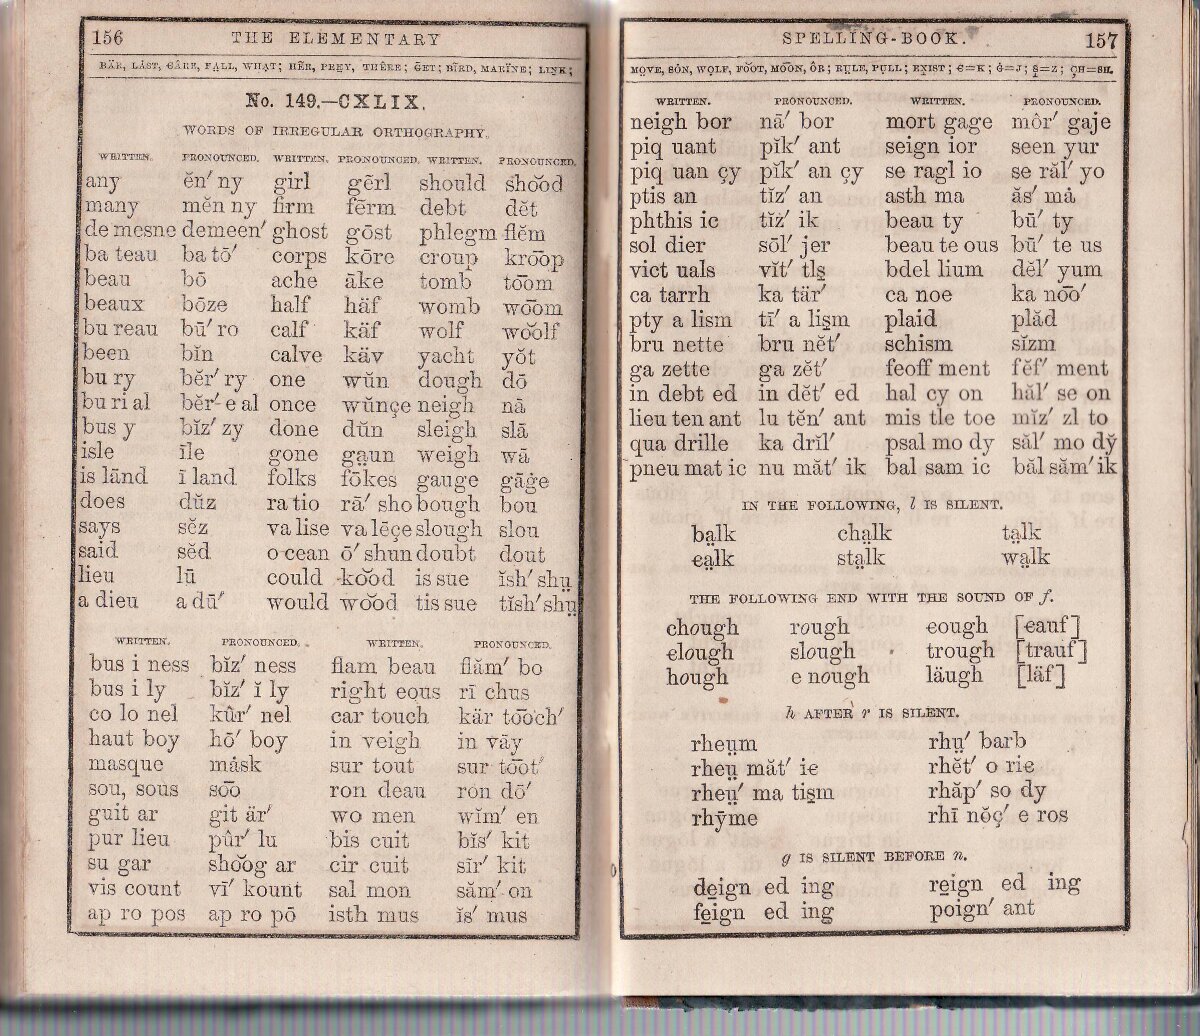 156 THE ELEMENTARY
BÄR, LÁST, CÂRE, FALL, WHAT; HẼR, PREY, THÊRE; ĞET; BÎRD, MARÏNE; LINK;
No. 149.—CXLIX.
WORDS OF IRREGULAR ORTHOGRAPHY.
WRITTEN. PRONOUNCED. WRITTEN. PRONOUNCED. WRITTEN. PRONOUNCED.
any ĕn′ ny girl gẽrl should sho͝od
many mĕn ny firm fẽrm debt dĕt
de mesne demeen′ ghost gōst phlegm flĕm
ba teau ba tō′ corps kōre croup kro͞op
beau bō ache āke tomb to͞om
beaux bōze half häf womb wo͞om
bu reau bū′ ro calf käf wolf wo͝olf
been bĭn calve käv yacht yŏt
bu ry bĕr′ ry one wŭn dough dō
bu ri al bĕr′ e al once wŭnçe neigh nā
bus y bĭz′ zy done dŭn sleigh slā
isle īle gone ga̤un weigh wā
is lānd ī land folks fōkes gauge gāġe
does dŭz ra tio rā′ sho bough bou
says sĕz va lise va lēçe slough slou
said sĕd o cean ō′ shun doubt dout
lieu lū could ko͝od is sue ĭsh′ shṳ
a dieu a dū′ would wo͝od tis sue tĭsh′ shṳ
WRITTEN. PRONOUNCED. WRITTEN. PRONOUNCED.
bus i ness bĭz′ ness flam beau flăm′ bo
bus i ly bĭz′ ĭ ly right eous rī chus
co lo nel kûr′ nel car touch kär to͞och′
haut boy hō′ boy in veigh in vāy
masque måsk sur tout sur to͞ot′
sou, sous so͞o ron deau ron dō′
guit ar git är′ wo men wĭm′ en
pur lieu pûr′ lu bis cuit bĭs′ kit
su gar sho͝og ar cir cuit sĭr′ kit
vis count vī′ kount sal mon săm′ on
ap ro pos ap ro pō isth mus ĭs′ mus
SPELLING-BOOK. 157
MOVE, SÓN, WOLF, FO͝OT, MO͞ON, ÔR; RṲLE, PULL; EXIST; C=K; Ġ=J; S=Z; ÇH=SH.
WRITTEN. PRONOUNCED. WRITTEN. PRONOUNCED.
neigh bor nā′ bor mort gage môr′ gaje
piq uant pĭk′ ant seign ior seen yur
piq uan çy pĭk′ an çy se ragl io se răl′ yo
ptis an tĭz′ an asth ma ăs′ må
phthis ic tĭz′ ik beau ty bū′ ty
sol dier sōl′ jer beau te ous bū′ te us
vict uals vĭt′ tls̱ bdel lium dĕl′ yum
ca tarrh ka tär′ ca noe ka no͞o′
pty a lism tī′ a lis̱m plaid plăd
bru nette bru nĕt′ schism sĭzm
ga zette ga zĕt′ feoff ment fĕf′ ment
in debt ed in dĕt′ ed hal cy on hăl′ se on
lieu ten ant lu tĕn′ ant mis tle toe mĭz′ zl to
qua drille ka drĭl′ psal mo dy săl′ mo dy̆
pneu mat ic nu măt′ ik bal sam ic băl săm′ ik
IN THE FOLLOWING, l IS SILENT.
ba̤lk cha̤lk ta̤lk
ca̤lk sta̤lk wa̤lk
THE FOLLOWING END WITH THE SOUND OF f.
chough rough cough [cauf]
clough slough trough [trauf]
hough e nough läugh [läf]
h AFTER r IS SILENT.
rheṳm rhṳ′ barb
rheṳ măt′ ic rhĕt′ o ric
rheṳ′ ma tis̱m rhăp′ so dy
rhȳme rhī nŏç′ e ros
g IS SILENT BEFORE n.
de̱ign ed ing re̱ign ed ing
fe̱ign ed ing poign′ ant